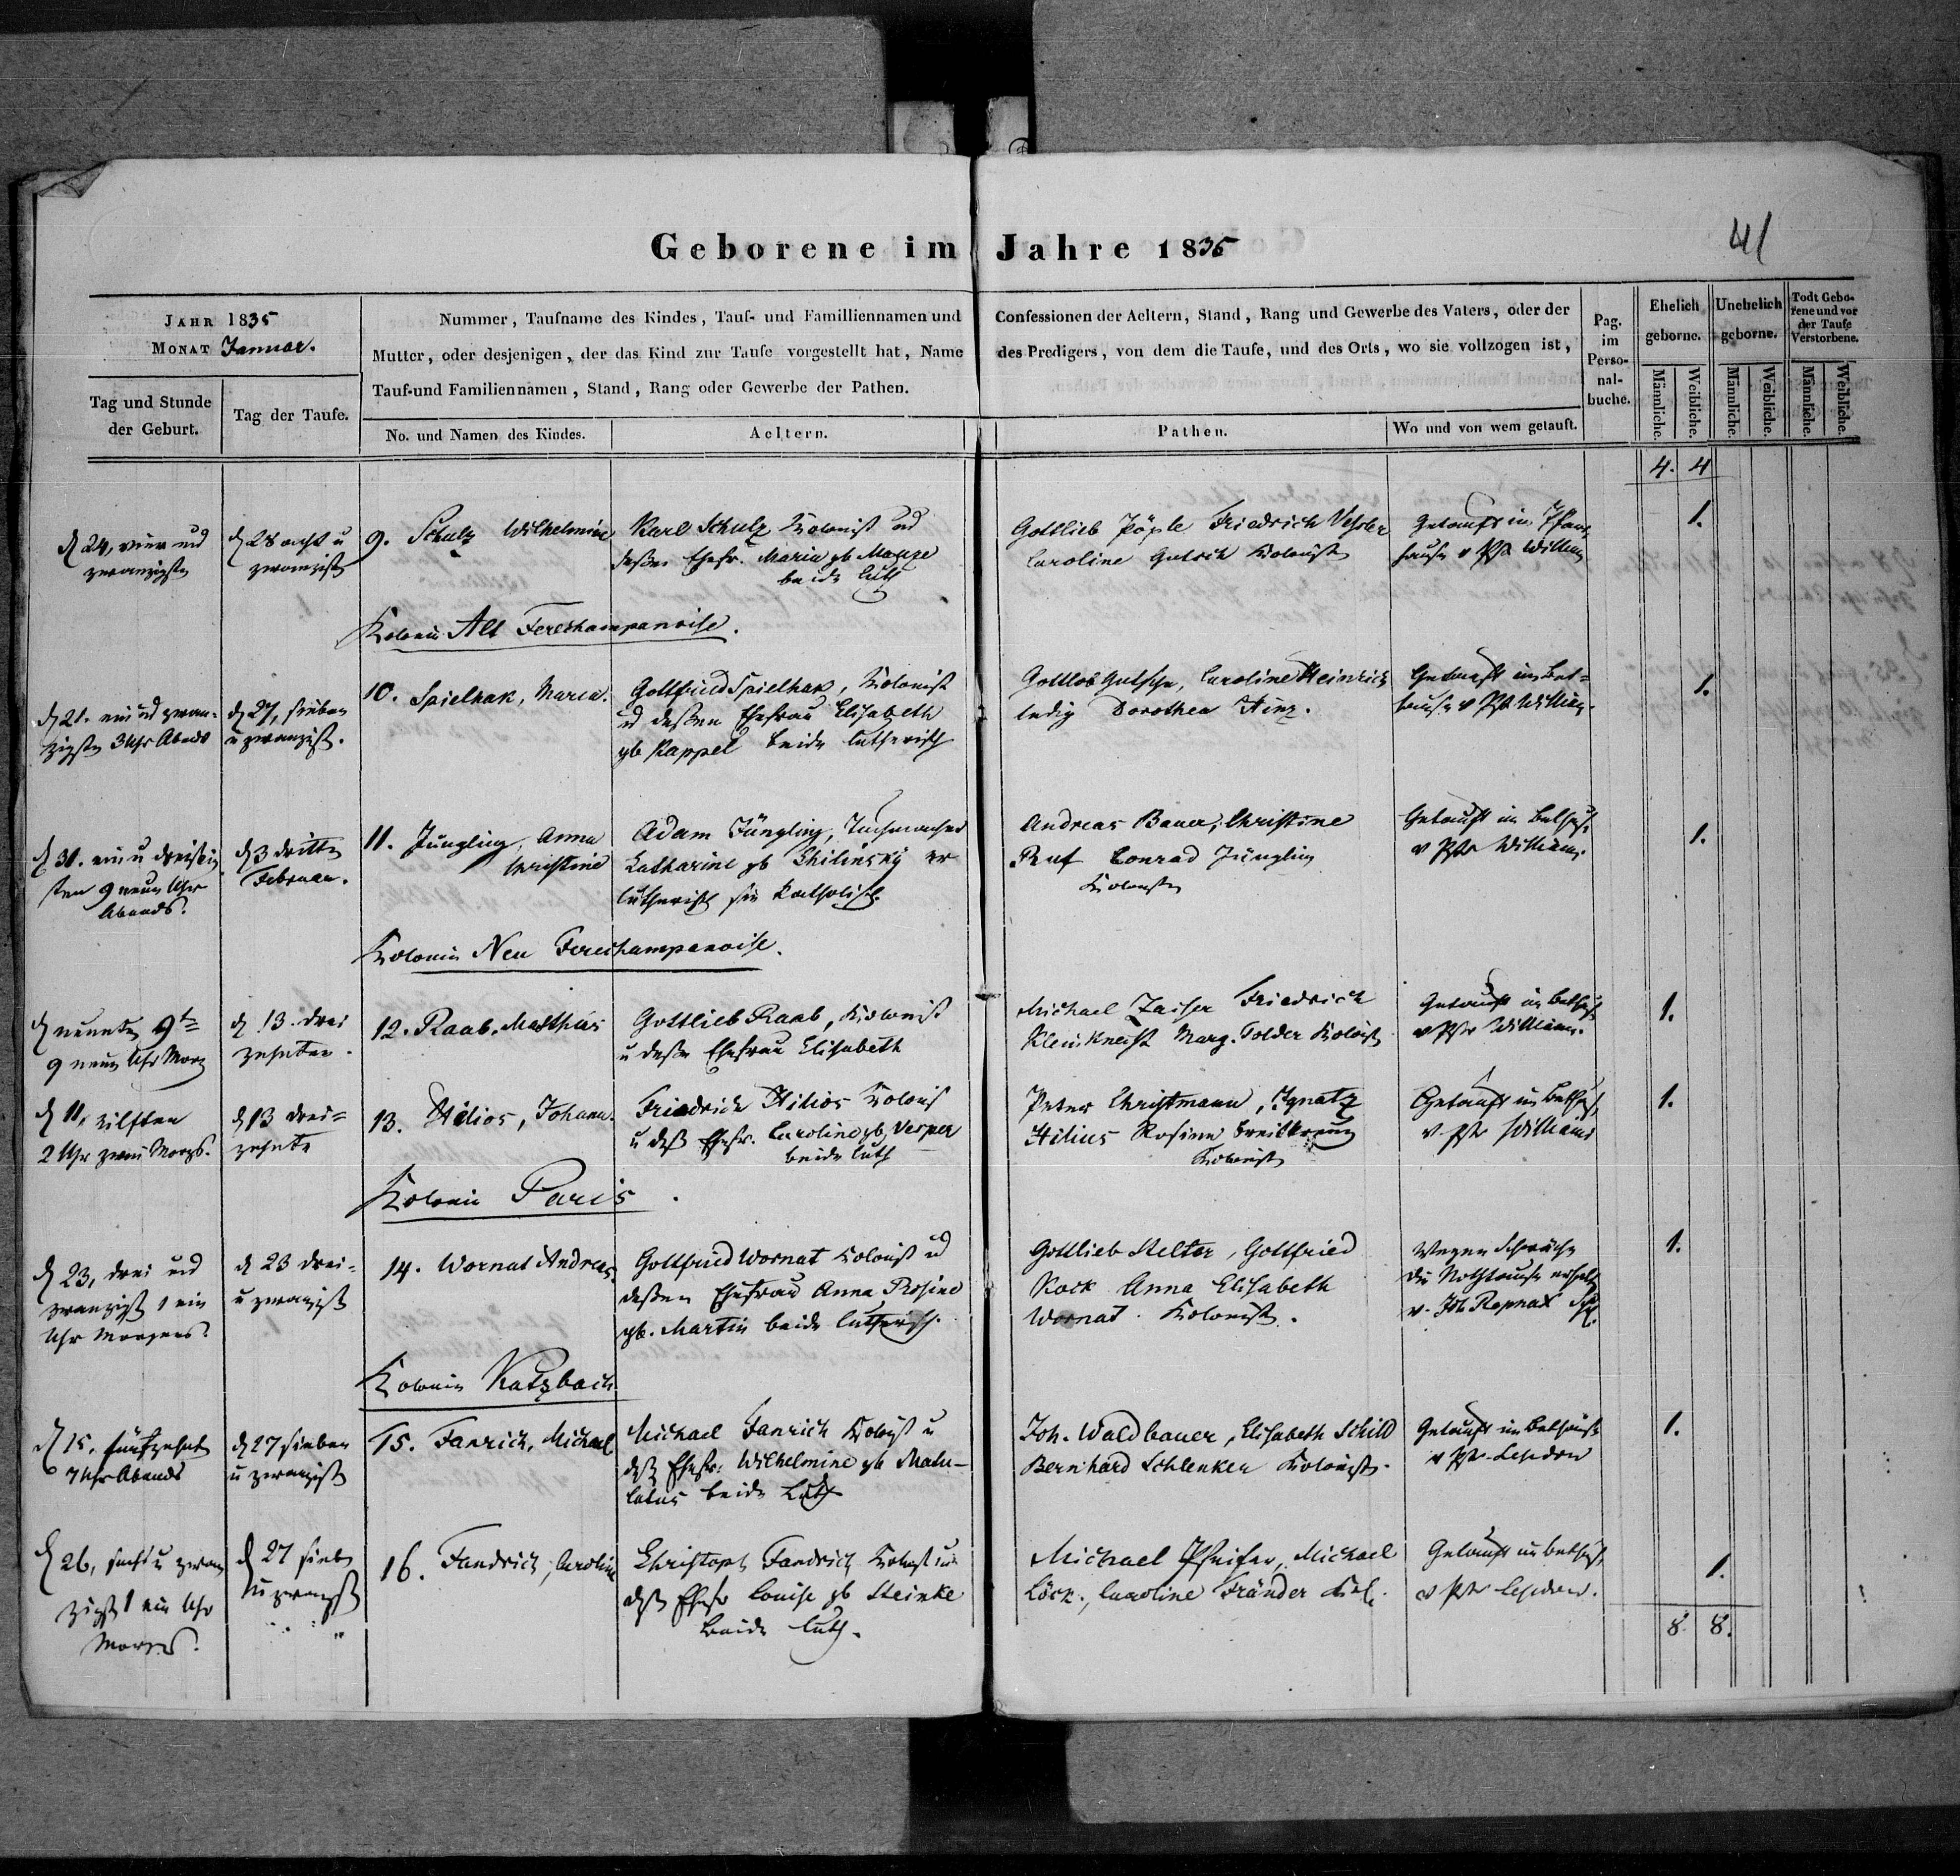 Geborene im Jahre 1835
41
JAHR 1835
MONAT Januar.
Tag und Stunde
der Geburt.
Tag der Taufe.
Nummer, Taufname des Kindes, Tauf- und Familliennamen und
Mutter, oder desjenigen, der das Kind zur Taufe vorgestellt hat, Name
Tauf-und Familiennamen, Stand, Rang oder Gewerbe der Pathen.
No. und Namen des Kindes.
Aeltern.
Confessionen der Aeltern, Stand, Rang und Gewerbe des Vaters, oder der
des Predigers, von dem die Taufe, und des Orts, wo sie vollzogen ist,
Pathen.
Wo und von wem getauft.
Pag.
im
Perso-
nal-
buche.
Ehelich
geborne.
Unehelich
geborne.
Todt Gebo-
rene und vor
der Taufe
Verstorbene.
Männliche.
Weibliche.
Männliche.
Weibliche.
Männliche.
Weibliche.
4. 4
d 24, vier und
zwanzigsten
d 28 acht u
zwanzigst
9. Schulz Wilhelmine
Karl Schulz Kolonist und
deßen Ehefr. Maria gb Manze
beide luth
Gottlieb Friedrich
Caroline Gutsch Kolonist
Getauft im Pfarr
hause v Pst William
1.
Kolonie Alt Fereshampanoise.
d 21. ein und zwan-
zigsten 3 Uhr Abends
d 27, sieben
u zwanzigst.
10. Spielhak, Maria.
Gottfried Spielhak, Kolonist
ud deßen Ehefrau Elisabeth
gb Kappel beide lutherisch
Gottlob Gutsche, Caroline Heinrich
ledig Dorothea Hinz.
Getauft im Bet-
hause v Pst William.
1.
d 31. ein u dreißig
sten 9 neun Uhr
Abends.
d 3 dritte
Februar.
11. Jüngling, Anna
Christine
Adam Jüngling, Tuchmacher
Katharine gb Chilinsky er
lutherisch sie katholisch.
Andreas Bauer, Christine
Ruf Conrad Jüngling
Kolonisten
Getauft im Bethause
v Pstr William.
1.
Kolonie Neu Fereshampanoise.
d neunten 9te
9 neun Uhr Morg
d 13. drei
zehnten.
12. Raab, Matthias
Gottlieb Raab, Kolonist
u deßen Ehefrau Elisabeth
Michael Zaiser Friedrich
Kleinknecht Marg. Tolder Kolonist
Getauft im Bethause
v Pstr William.
1.
d 11, eilften
2 Uhr zwei Morgs.
d 13 drei-
zehnte
13. Hilios, Johann.
Friedrich Hilios Kolonist
u deß Ehefr. Caroline gb Vesper
beide luth
Peter Christmann, Ignatz
Hilius Rosine Breitkreuz
Kolonist
Getauft im Bethause
v. Pstr William
1.
Kolonie Paris.
d 23, drei und
zwanzigst 1 ein
Uhr Morgens.
d 23 drei-
u zwanzigst
14. Wornat Andreas.
Gottfried Wornat Kolonist ud
deßen Ehefrau Anna Rosine
gb. Martin beide lutherisch.
Gottlieb Stelter, Gottfried
Kock Anna Elisabeth
Wornat. Kolonist.
Wegen Schwäche
die Nothtaufe erhalten
v. Joh Repnak Schl.
1.
Kolonie Katzbach
d 15. fünfzehnt
7 Uhr Abends
d 27 sieben
u zwanzigst
15. Fanrich, Michael
Michael Fanrich Kolonist u
deß Ehefr. Wilhelmine gb Matu-
latus beide Luth
Joh. Waldbauer, Elisabeth Schild
Bernhard Schlenker Kolonist.
Getauft im Bethause
v Pstr
1.
d 26, sechs u zwan
zigst 1 ein Uhr
Morgens.
d 27 sieb
u zwanzigst
16. Fandrich, Caroline
Christoph Fandrich Kolonist u
deß Ehefr Louise gb Steinke
beide luth.
Michael Pfeifer, Michael
Löck., Caroline Fränder Kol.
Getauft im Bethause
v Pstr
1.
8. 8.